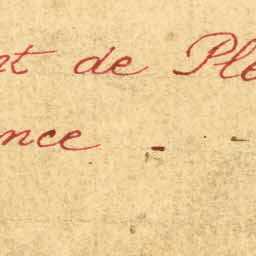 nt de Ple
nce -